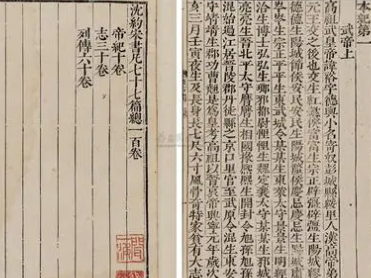 本紀第一
武帝上
高祖武皇帝諱裕字德輿小名寄奴彭城縣綏里人漢高帝弟
元王交之後也交生紅懿侯富富生宗正辟彊辟彊生陽城
德德生陽城節侯安民安民生陽城釐侯慶忌慶忌生陽
平生東武城令某某生東萊太守景景生明經
洽生博士弘弘生琅邪都尉悝悝生魏定襄太守某某生邪城
亮生晉北平太守膺膺生相國掾熙熙生開封令旭孫旭孫
混始過江居晉陵郡丹徒縣之京口里官至武原令混生東安
靖生郡功曹翹是爲皇考高祖以晉哀帝興寧元年歲次
三月壬寅夜生及長身長七尺六寸風骨奇特家貧有大志
沈約宋書凡七十七篇總一百卷
帝紀十卷
志三十卷
列傳六十卷